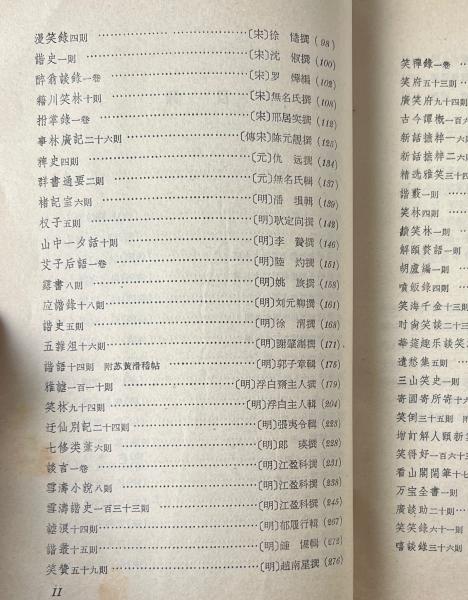 漫笑錄四則……〔宋〕徐 慥撰(98)
諧史一則……〔宋〕沈 俶撰(100)
醉翁談錄一卷……〔宋〕罗 燁編(102)
籍川笑林十則……〔宋〕無名氏撰(108)
拊掌錄一卷……〔宋〕邢居实撰(112)
事林廣記二十六則……〔傳宋〕陈元靚撰(125)
稗史四則……〔元〕仇 远撰(134)
群書通要二則……〔元〕無名氏輯(137)
楮記室六則……〔明〕潘 塤輯(139)
权子五則……〔明〕耿定向撰(142)
山中一夕話十則……〔明〕李 贄撰(146)
艾子后語一卷……〔明〕陸 灼撰(151)
露書八則……〔明〕姚 旅撰(158)
应諧錄十八則……〔明〕刘元卿撰(161)
諧史五則……〔明〕徐 渭撰(168)
五雜俎十六則……〔明〕謝肇淛撰(171)
諧語十四則 附苏黄滑稽帖……〔明〕郭子章輯(175)
雅謔一百一十則……〔明〕浮白齋主人撰(179)
笑林九十四則……〔明〕浮白主人輯(204)
迂仙別記二十四則……〔明〕張夷令輯(223)
七修类藁六則……〔明〕郎 瑛撰(228)
談言一卷……〔明〕江盈科撰(231)
雪濤小說八則……〔明〕江盈科撰(238)
雪濤諧史一百三十三則……〔明〕江盈科撰(245)
謔浪十四則……〔明〕郁履行輯(267)
諧叢十五則……〔明〕鍾 惺輯(272)
笑贊五十九則……〔明〕趙南星撰(276)
11
笑禪錄一卷
笑府五十三則
廣笑府九十四則
古今譚概一百六
新話摭粹一六
新話摭粹二六
精选雅笑三十四
諧藪一則
笑林四則
笑林一則
解頤贅語一則
胡盧編一則
噴飯錄四則
笑海千金十三則
时尙笑談二十三
華筵趣乐談笑
遣愁集五則
三山笑史一則
寄園寄所寄十六
笑倒三十五則 附
增訂解人頤新
笑得好一百六十三
看山閣閒筆十七
万宝全書一則
廣談助二十則
笑笑錄六十一則
嘻談錄三十六則